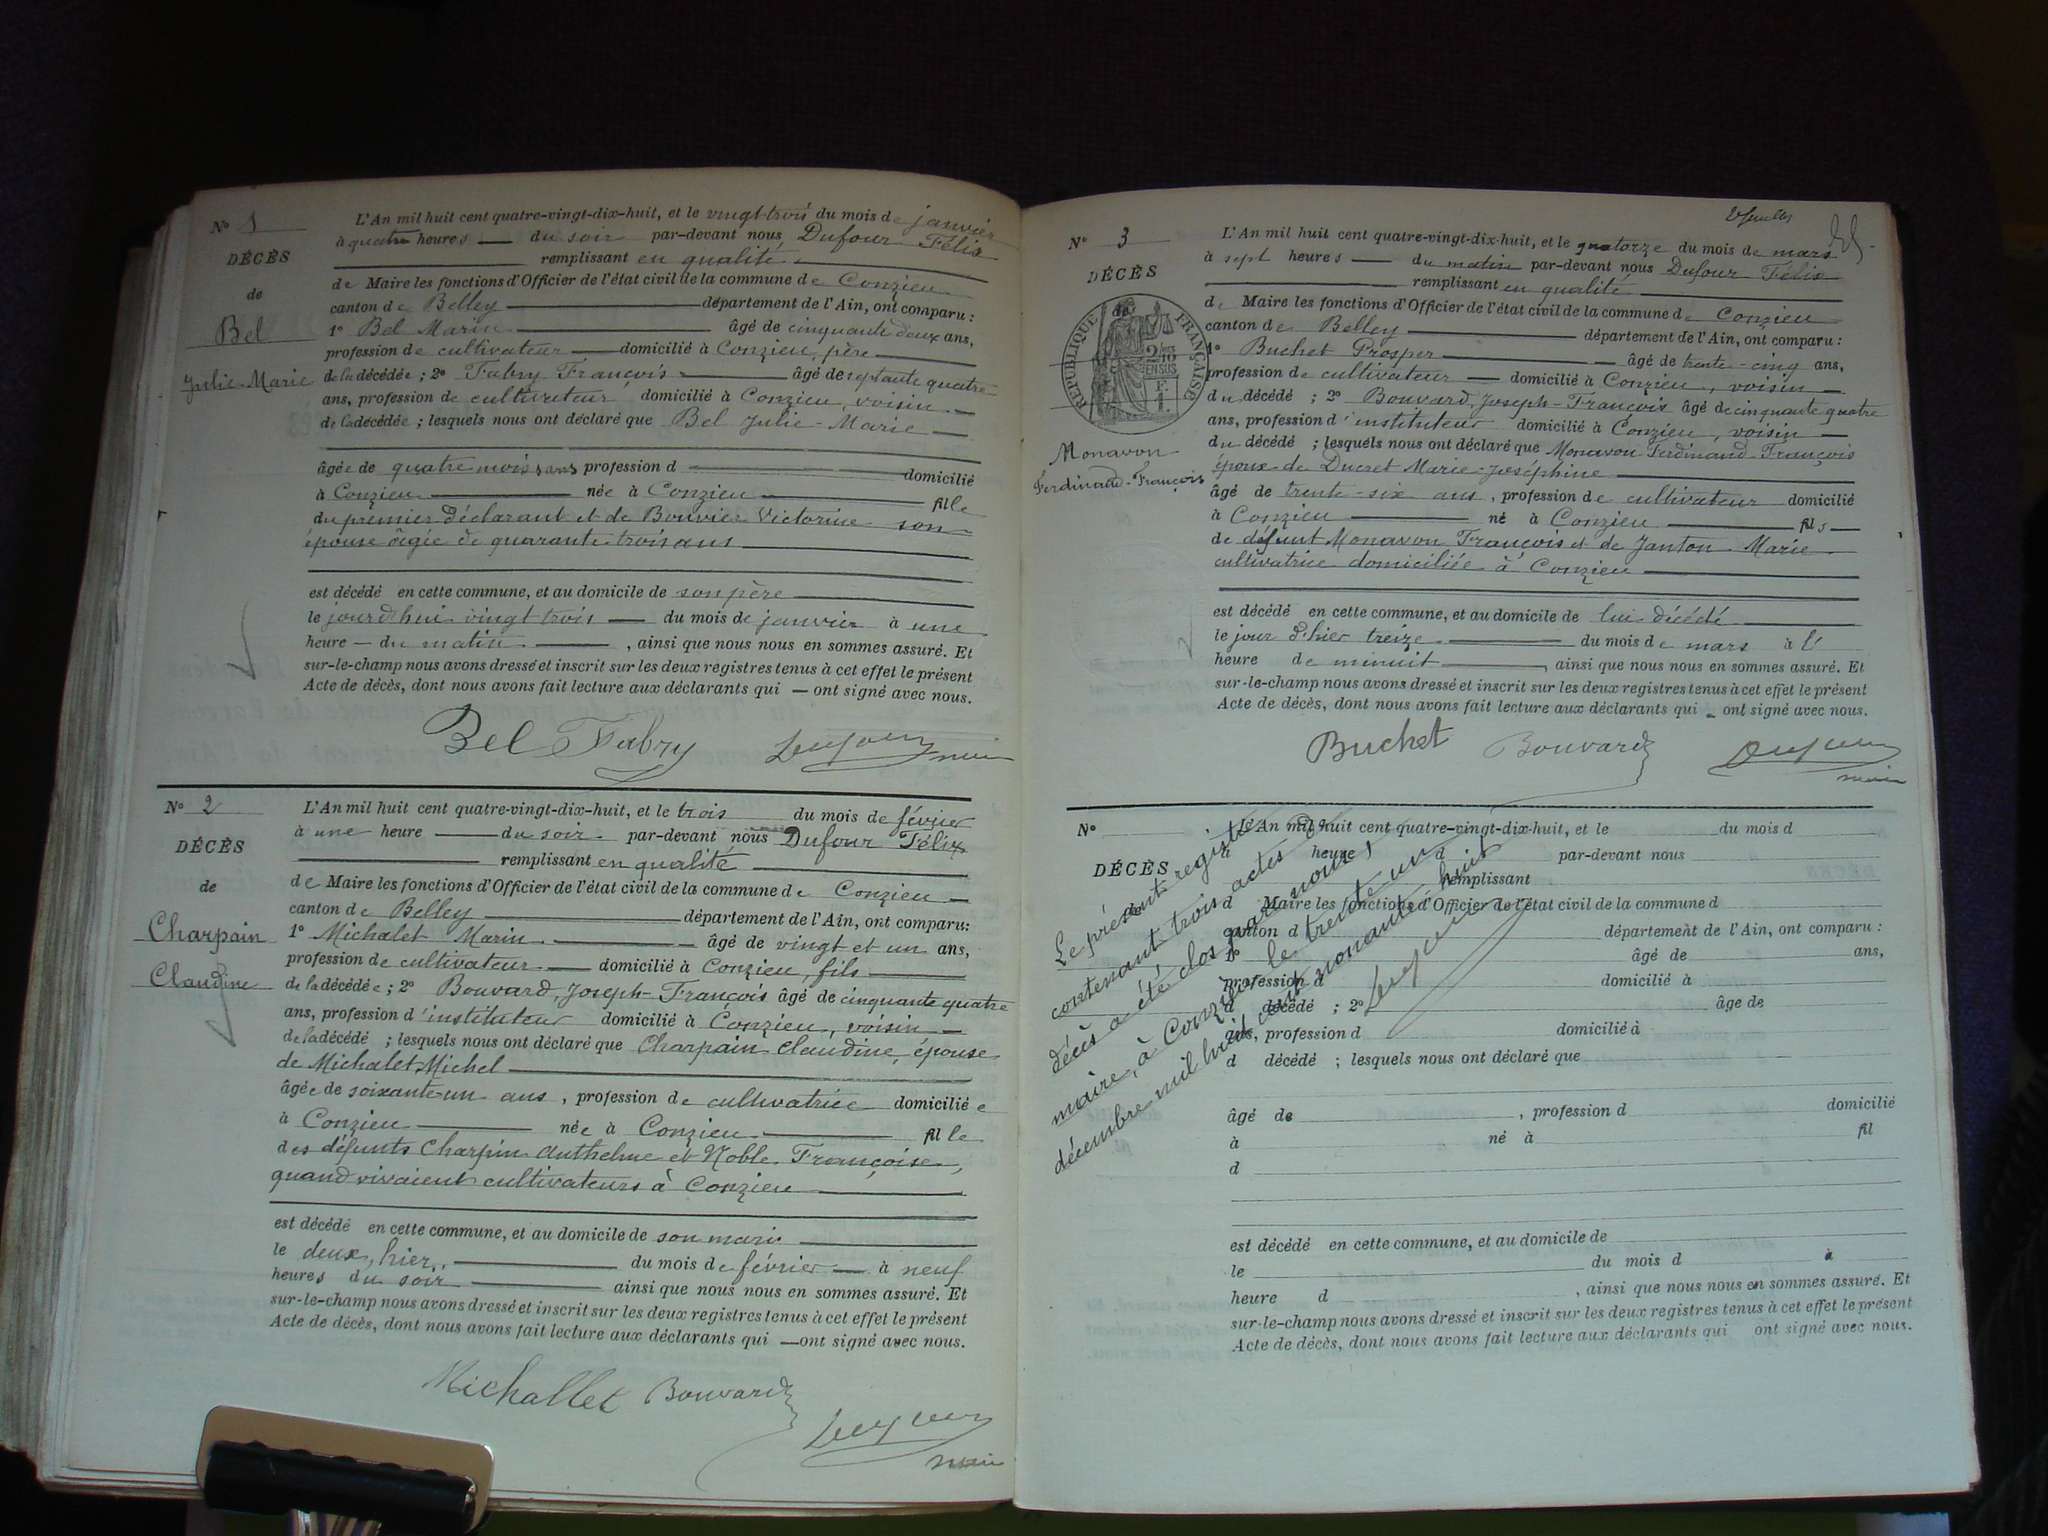 N° 1
DÉCÈS
de
Bel
Julie-Marie
L'An mil huit cent quatre-vingt-dix-huit, et le vingt trois du mois de janvier
à quatre heures du soir par-devant nous Dufour Félix
remplissant en qualité
de Maire les fonctions d'Officier de l'état civil de la commune de Conzieu
canton de Belley département de l'Ain, ont comparu :
1° Bel Marin âgé de cinquante deux ans,
profession de cultivateur domicilié à Conzieu, père
de la décédée ; 2° Fabry François âgé de septante quatre
ans, profession de cultivateur domicilié à Conzieu, voisin
de la décédée ; lesquels nous ont déclaré que Bel Julie-Marie
âgée de quatre mois sans profession d domicilié
à Conzieu née à Conzieu fille
du premier déclarant et de Bouvier Victorine son
épouse âgée de quarante trois ans
est décédé en cette commune, et au domicile de son père
le jourd'hui vingt trois du mois de janvier à une
heure du matin, ainsi que nous nous en sommes assuré. Et
sur-le-champ nous avons dressé et inscrit sur les deux registres tenus à cet effet le présent
Acte de décès, dont nous avons fait lecture aux déclarants qui ont signé avec nous.
Bel Fabry Dufour
maire
N° 2
DÉCÈS
de
Charpain
Claudine
L'An mil huit cent quatre-vingt-dix-huit, et le trois du mois de février
à une heure du soir par-devant nous Dufour Félix
remplissant en qualité
de Maire les fonctions d'Officier de l'état civil de la commune de Conzieu
canton de Belley département de l'Ain, ont comparu:
1° Michalet Marin âgé de vingt et un ans,
profession de cultivateur domicilié à Conzieu, fils
de la décédée ; 2° Bouvard, Joseph-François âgé de cinquante quatre
ans, profession d'instituteur domicilié à Conzieu, voisin
de la décédé ; lesquels nous ont déclaré que Charpain Claudine, épouse
de Michalet Michel
âgée de soixante un ans, profession de cultivatrice domiciliée
à Conzieu née à Conzieu fille
des défunts Charpin Anthelme et Noble Françoise,
quand vivaient cultivateurs à Conzieu
est décédé en cette commune, et au domicile de son mari
le deux, hier, du mois de février à neuf
heures du soir ainsi que nous nous en sommes assuré. Et
sur-le-champ nous avons dressé et inscrit sur les deux registres tenus à cet effet le présent
Acte de décès, dont nous avons fait lecture aux déclarants qui ont signé avec nous.
Michallet Bouvard
Dufour
maire
N° 3
DÉCÈS
de
RÉPUBLIQUE FRANÇAISE
2/10 EN SUS
Monavon
Ferdinand-François
L'An mil huit cent quatre-vingt-dix-huit, et le quatorze du mois de mars
à sept heures du matin par-devant nous Dufour Félix
remplissant en qualité
de Maire les fonctions d'Officier de l'état civil de la commune de Conzieu
canton de Belley département de l'Ain, ont comparu :
1° Buchet Prosper âgé de trente-cinq ans,
profession de cultivateur domicilié à Conzieu, voisin
du décédé ; 2° Bouvard, Joseph-François âgé de cinquante quatre
ans, profession d'instituteur domicilié à Conzieu, voisin
du décédé ; lesquels nous ont déclaré que Monavon Ferdinand-François
époux de Ducret Marie-Joséphine
âgé de trente-six ans, profession de cultivateur domicilié
à Conzieu né à Conzieu fils
de défunt Monavon François et de Janton Marie
cultivatrice domiciliée à Conzieu
est décédé en cette commune, et au domicile de lui décédé
le jour d'hier treize du mois de mars à l'
heure de minuit, ainsi que nous nous en sommes assuré. Et
sur-le-champ nous avons dressé et inscrit sur les deux registres tenus à cet effet le présent
Acte de décès, dont nous avons fait lecture aux déclarants qui ont signé avec nous.
Buchet Bouvard Dufour
maire
N°
DÉCÈS
L'An mil huit cent quatre-vingt-dix-huit, et le du mois d
à heure d par-devant nous
remplissant
d Maire les fonctions d'Officier de l'état civil de la commune d
canton d département de l'Ain, ont comparu :
1° âgé de ans,
profession d domicilié à
d décédé ; 2° âge de
ans, profession d domicilié à
d décédé ; lesquels nous ont déclaré que
âgé de , profession d domicilié
à né à fil
d
est décédé en cette commune, et au domicile de
le du mois d à
heure d , ainsi que nous nous en sommes assuré. Et
sur-le-champ nous avons dressé et inscrit sur les deux registres tenus à cet effet le présent
Acte de décès, dont nous avons fait lecture aux déclarants qui ont signé avec nous.
Le présent registre
contenant trois actes de
décès a été clos par nous,
maire, à Conzieu le trente un
décembre mil huit cent nonante huit
Dufour